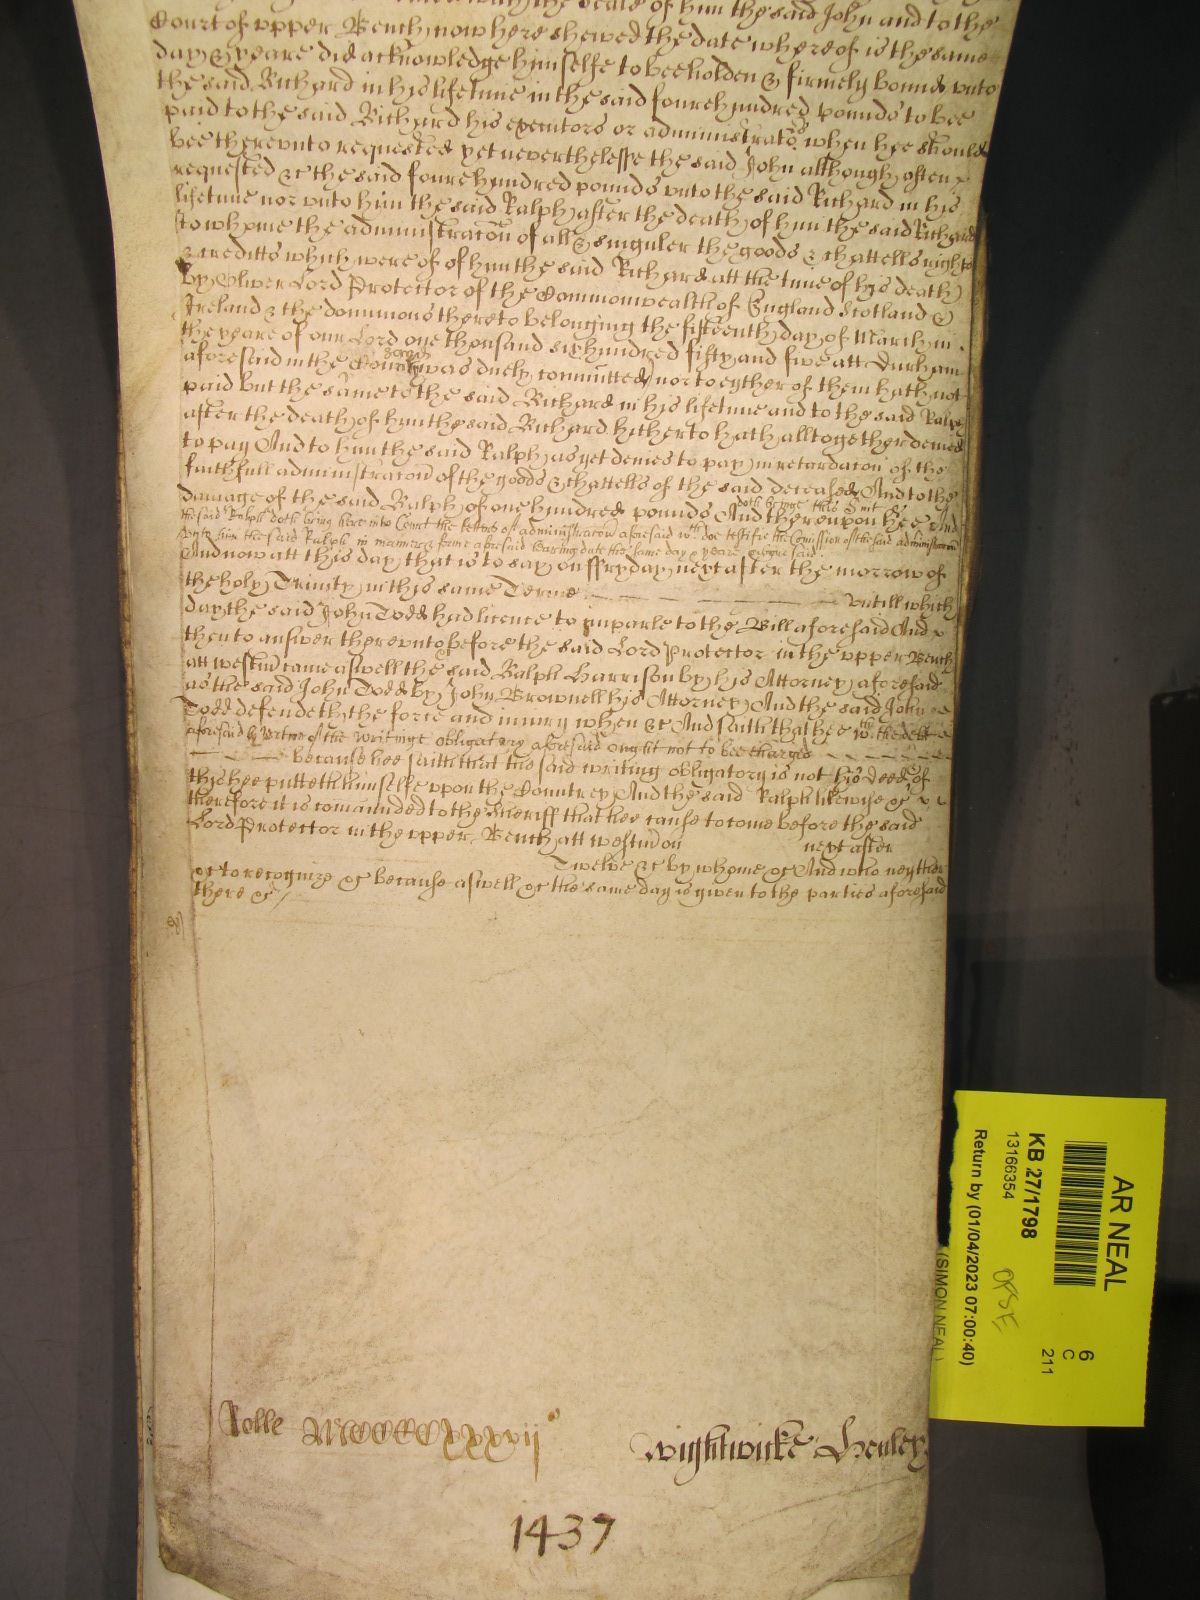 with the Seale of him the said John and to the
Court of vpper Bench now here shewed the date whereof is the same
day & yeare did acknowledge himselfe to bee holden & firmely bound vnto
the said Richard in his lifetime in the said foure hundred pounds to bee
paid to the said Richard his executors or administrators when hee should
bee therevnto requested yet neverthelesse the said John although often
requested &c the said foure hundred pounds vnto the said Richard in his
lifetime nor vnto him the said Ralph after the death of him the said Richard
to whome the administracon of all & singuler the goods & chattells rights
& creditts which were of of him the said Richard att the time of his death
by Oliver Lord Protector of the Commonwealth of England Scotland &
Ireland & the dominions thereto belonging the fifteenth day of March in
the yeare of our Lord one thousand six hundred fifty and five att Durham
aforesaid in the County was duely committed nor to eyther of them hath not
paid but the same to the said Richard in his lifetime and to the said Ralph
after the death of him the said Richard hitherto hath alltogether denied
to pay And to him the said Ralph as yet denies to pay in retardacon of the
faithfull administracon of the goods & chattells of the said deceased And to the
damage of the said Ralph of one hundred pounds And therevpon hee
doth bringe this Suit And
the said Ralph doth bring here into Court the letters of administracon aforesaid wch doe testifie the Comission of the said administracon
vnto him the said Ralph in manner & forme aforesaid bearing date the same day & yeare aforesaid
And now att this day that is to say on ffryday next after the morrow of
the holy Trinity in this same Terme vntill which
day the said John Todd had licence to imparle to the Bill aforesaid And
then to answer therevnto before the said Lord Protector in the vpper Bench
att westm came aswell the said Ralph Harrison by his Attorney aforesaid
as the said John Todd by John Brownell his Attorney And the said John
Todd defendeth the force and iniury when &c And saith that hee wth the debt
aforesaid by vertue of the writinge obligatory aforesaid ought not to bee charged
because hee saith that the said writing obligatory is not his deed & of
this hee putteth himselfe vpon the Countrey And the said Ralph likewise &c
therefore it is comanded to the Sheriff that hee cause to come before the said
Lord Protector in the vpper Bench att westm on next after
Twelve &c by whome &c And who neyther
&c to recognize &c because aswell &c the same day is given to the parties aforesaid
there &c
Rolle MCCCCXXXVII
Wightwicke Henley
1437
AR NEAL
6
C
211
KB 27/1798
13166354
Return by (01/04/2023 07:00:40)
(SIMON NEAL)